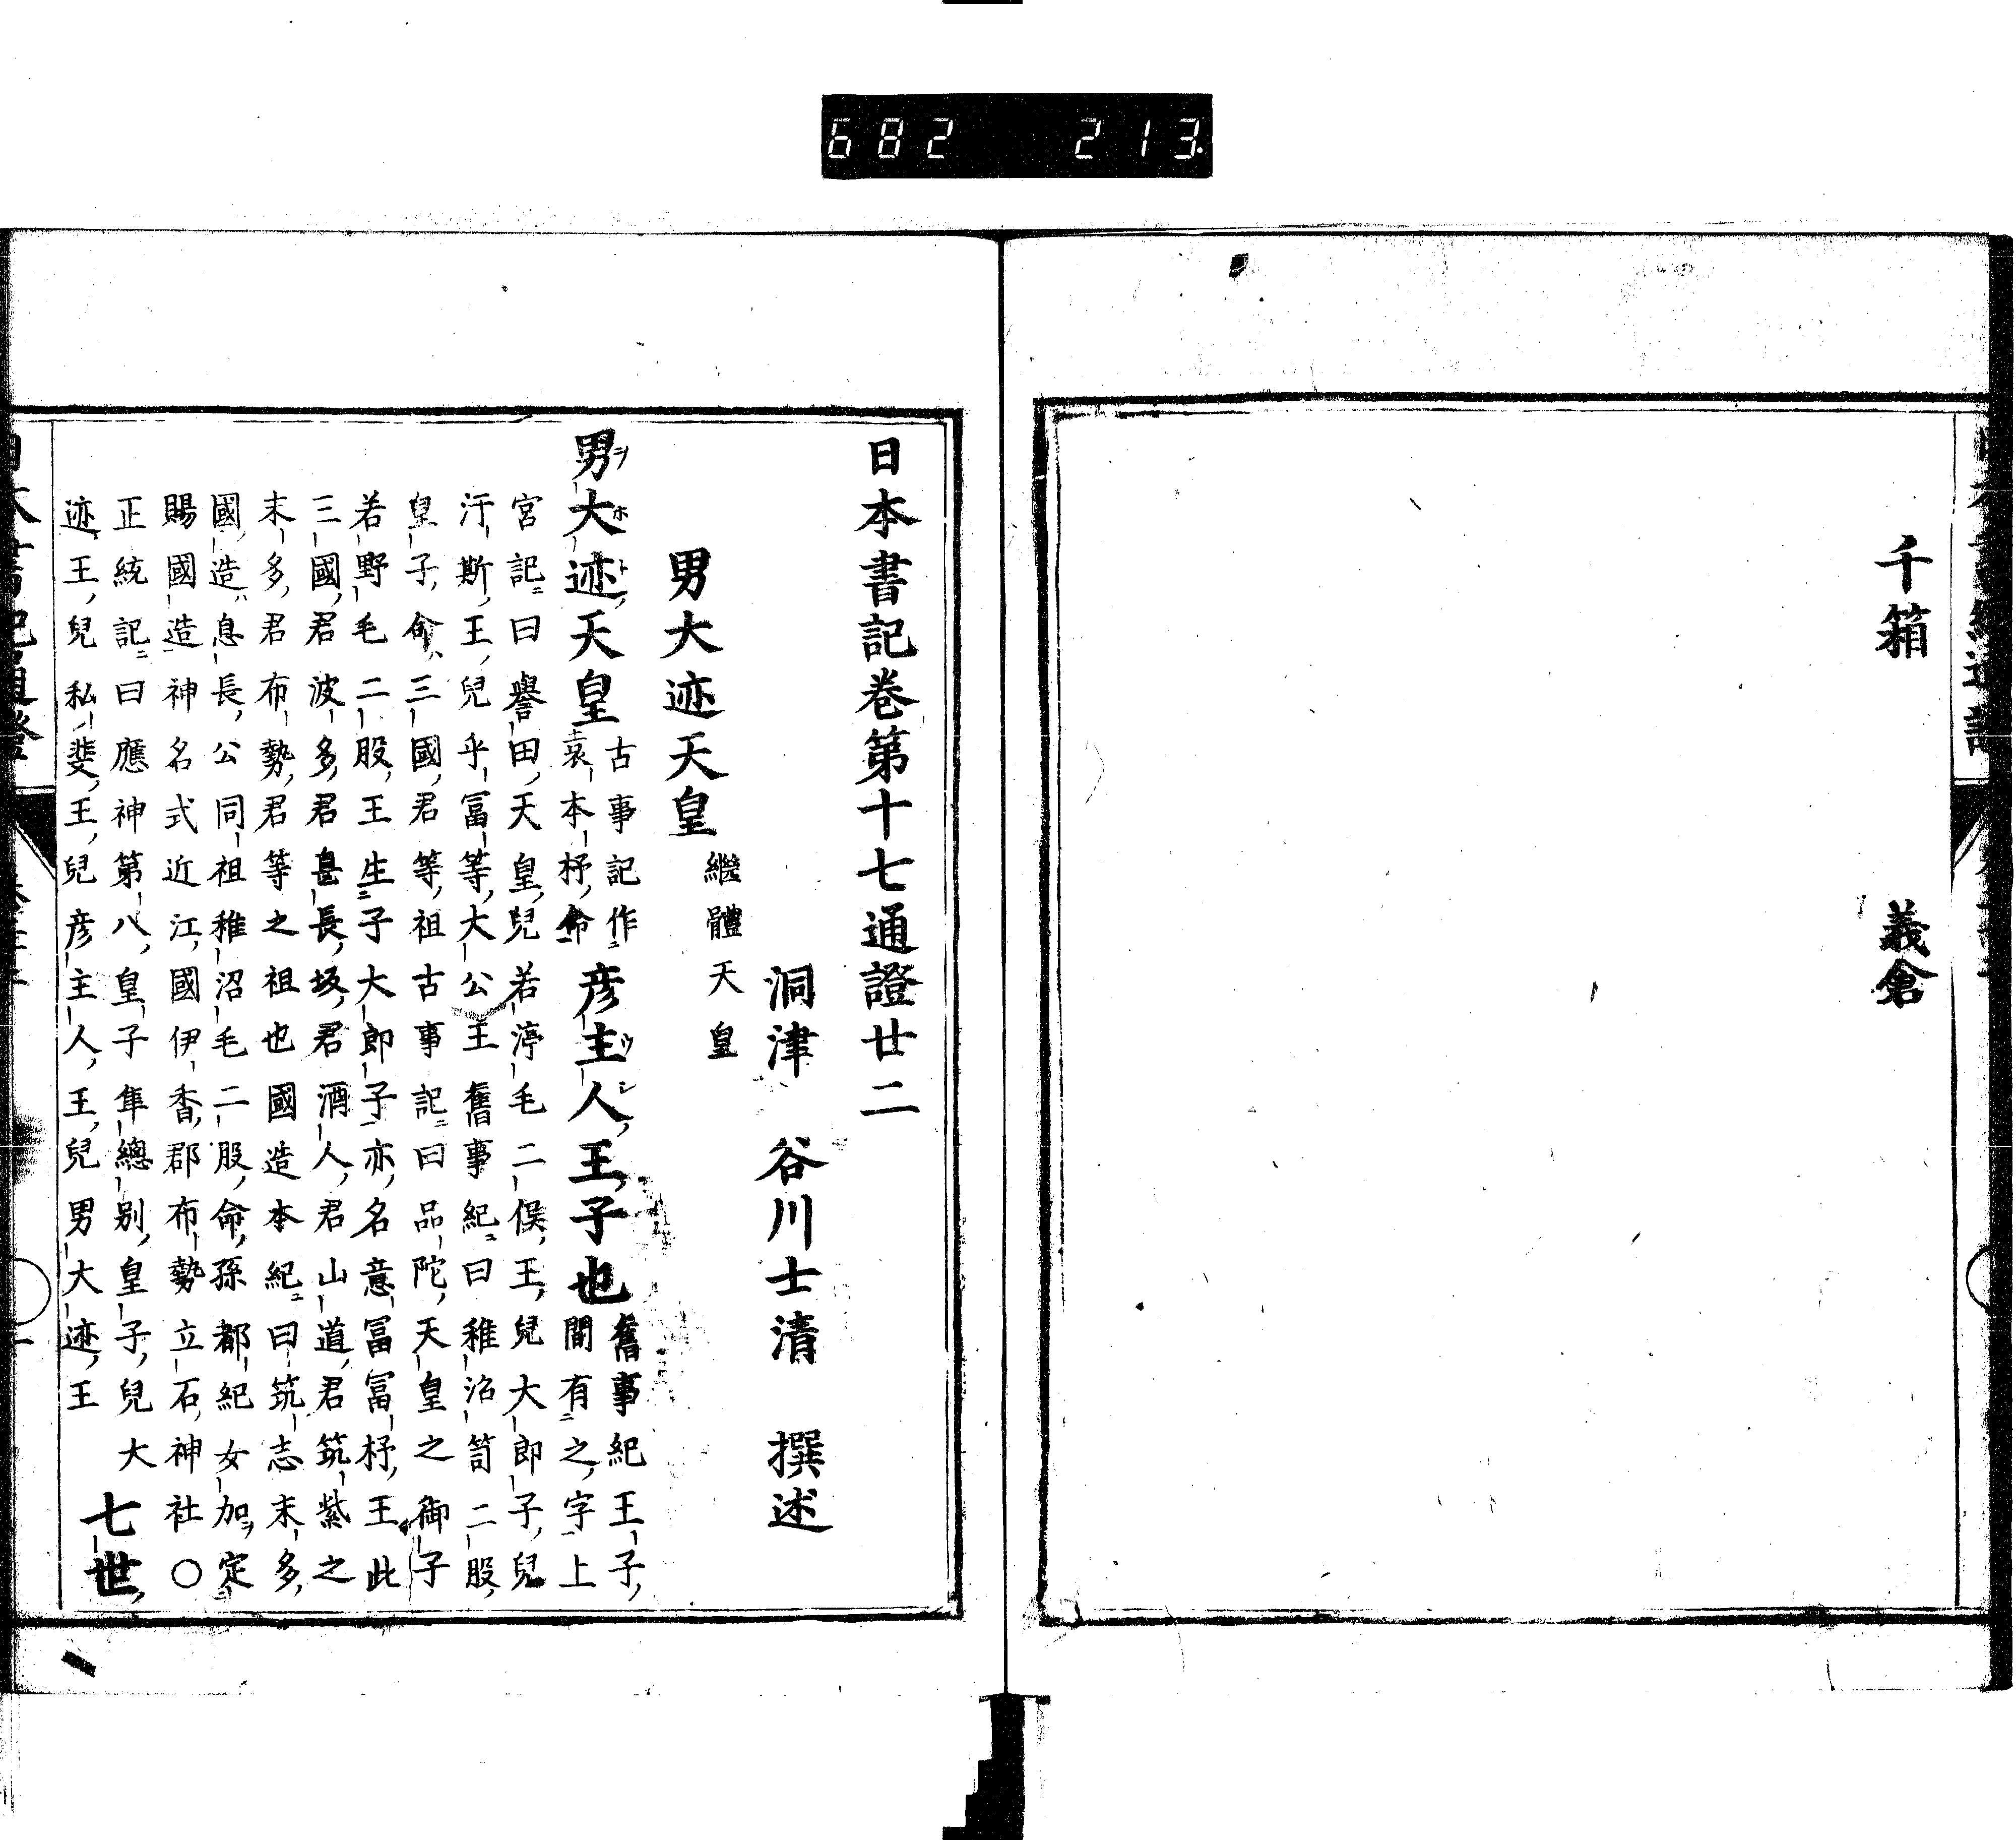 682 213
千箱 義倉
日本書記卷第十七通證廿二
洞津 谷川士清 撰述
男大迹天皇 繼體天皇
男大迹天皇 古事記作
袁本杼命 彦主人王子也 舊事紀王子
間有之字上
宮記曰譽田天皇兒若渟毛二俣王兒大郎子兒
汙斯王兒乎富等大公王舊事紀曰稚沼笥二股
皇子命三國君等祖古事記曰品陀天皇之御子
若野毛二股王生子大郎子亦名意富富杼王此
三國君波多君息長坂君酒人君山道君筑紫之
末多君布勢君等之祖也國造本紀曰筑志末多
國造息長公同祖稚沼毛二股命孫都紀女加定
賜國造神名式近江國伊香郡布勢立石神社〇
正統記曰應神第八皇子隼總別皇子兒大
迹王兒私斐王兒彦主人王兒男大迹王
七世